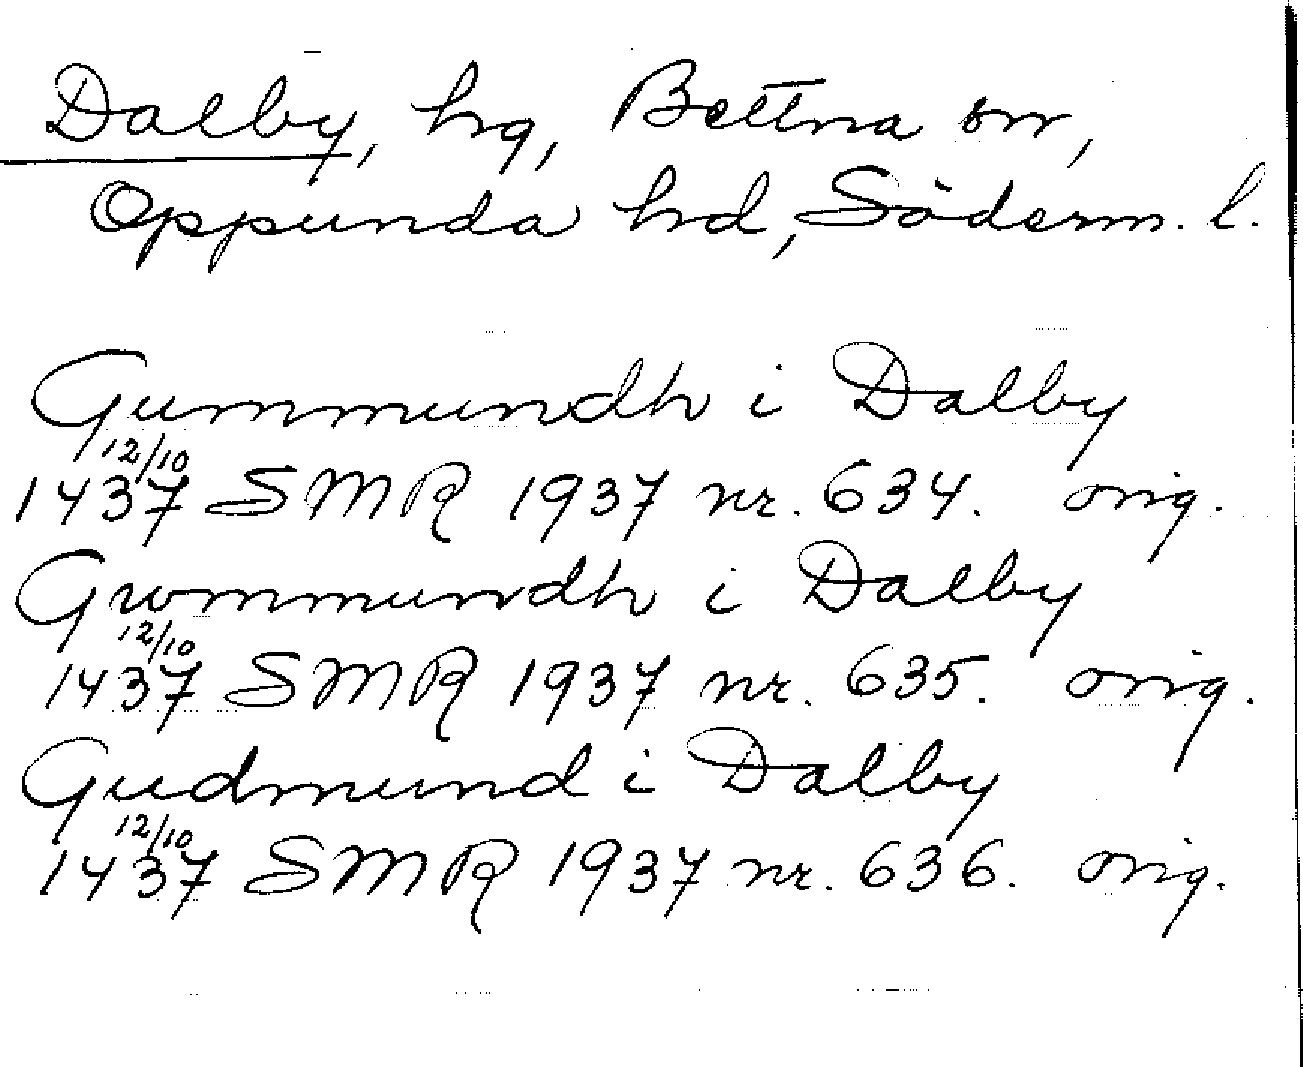 Dalby, hg, Bettna sn,
Oppunda hd, Söderm. l.
Gummundh i Dalby
12/10
1437 SMR 1937 nr. 634. orig.
Gwmmundh i Dalby
12/10
1437 SMR 1937 nr. 635. orig.
Gudmund i Dalby
12/10
1437 SMR 1937 nr. 636. orig.